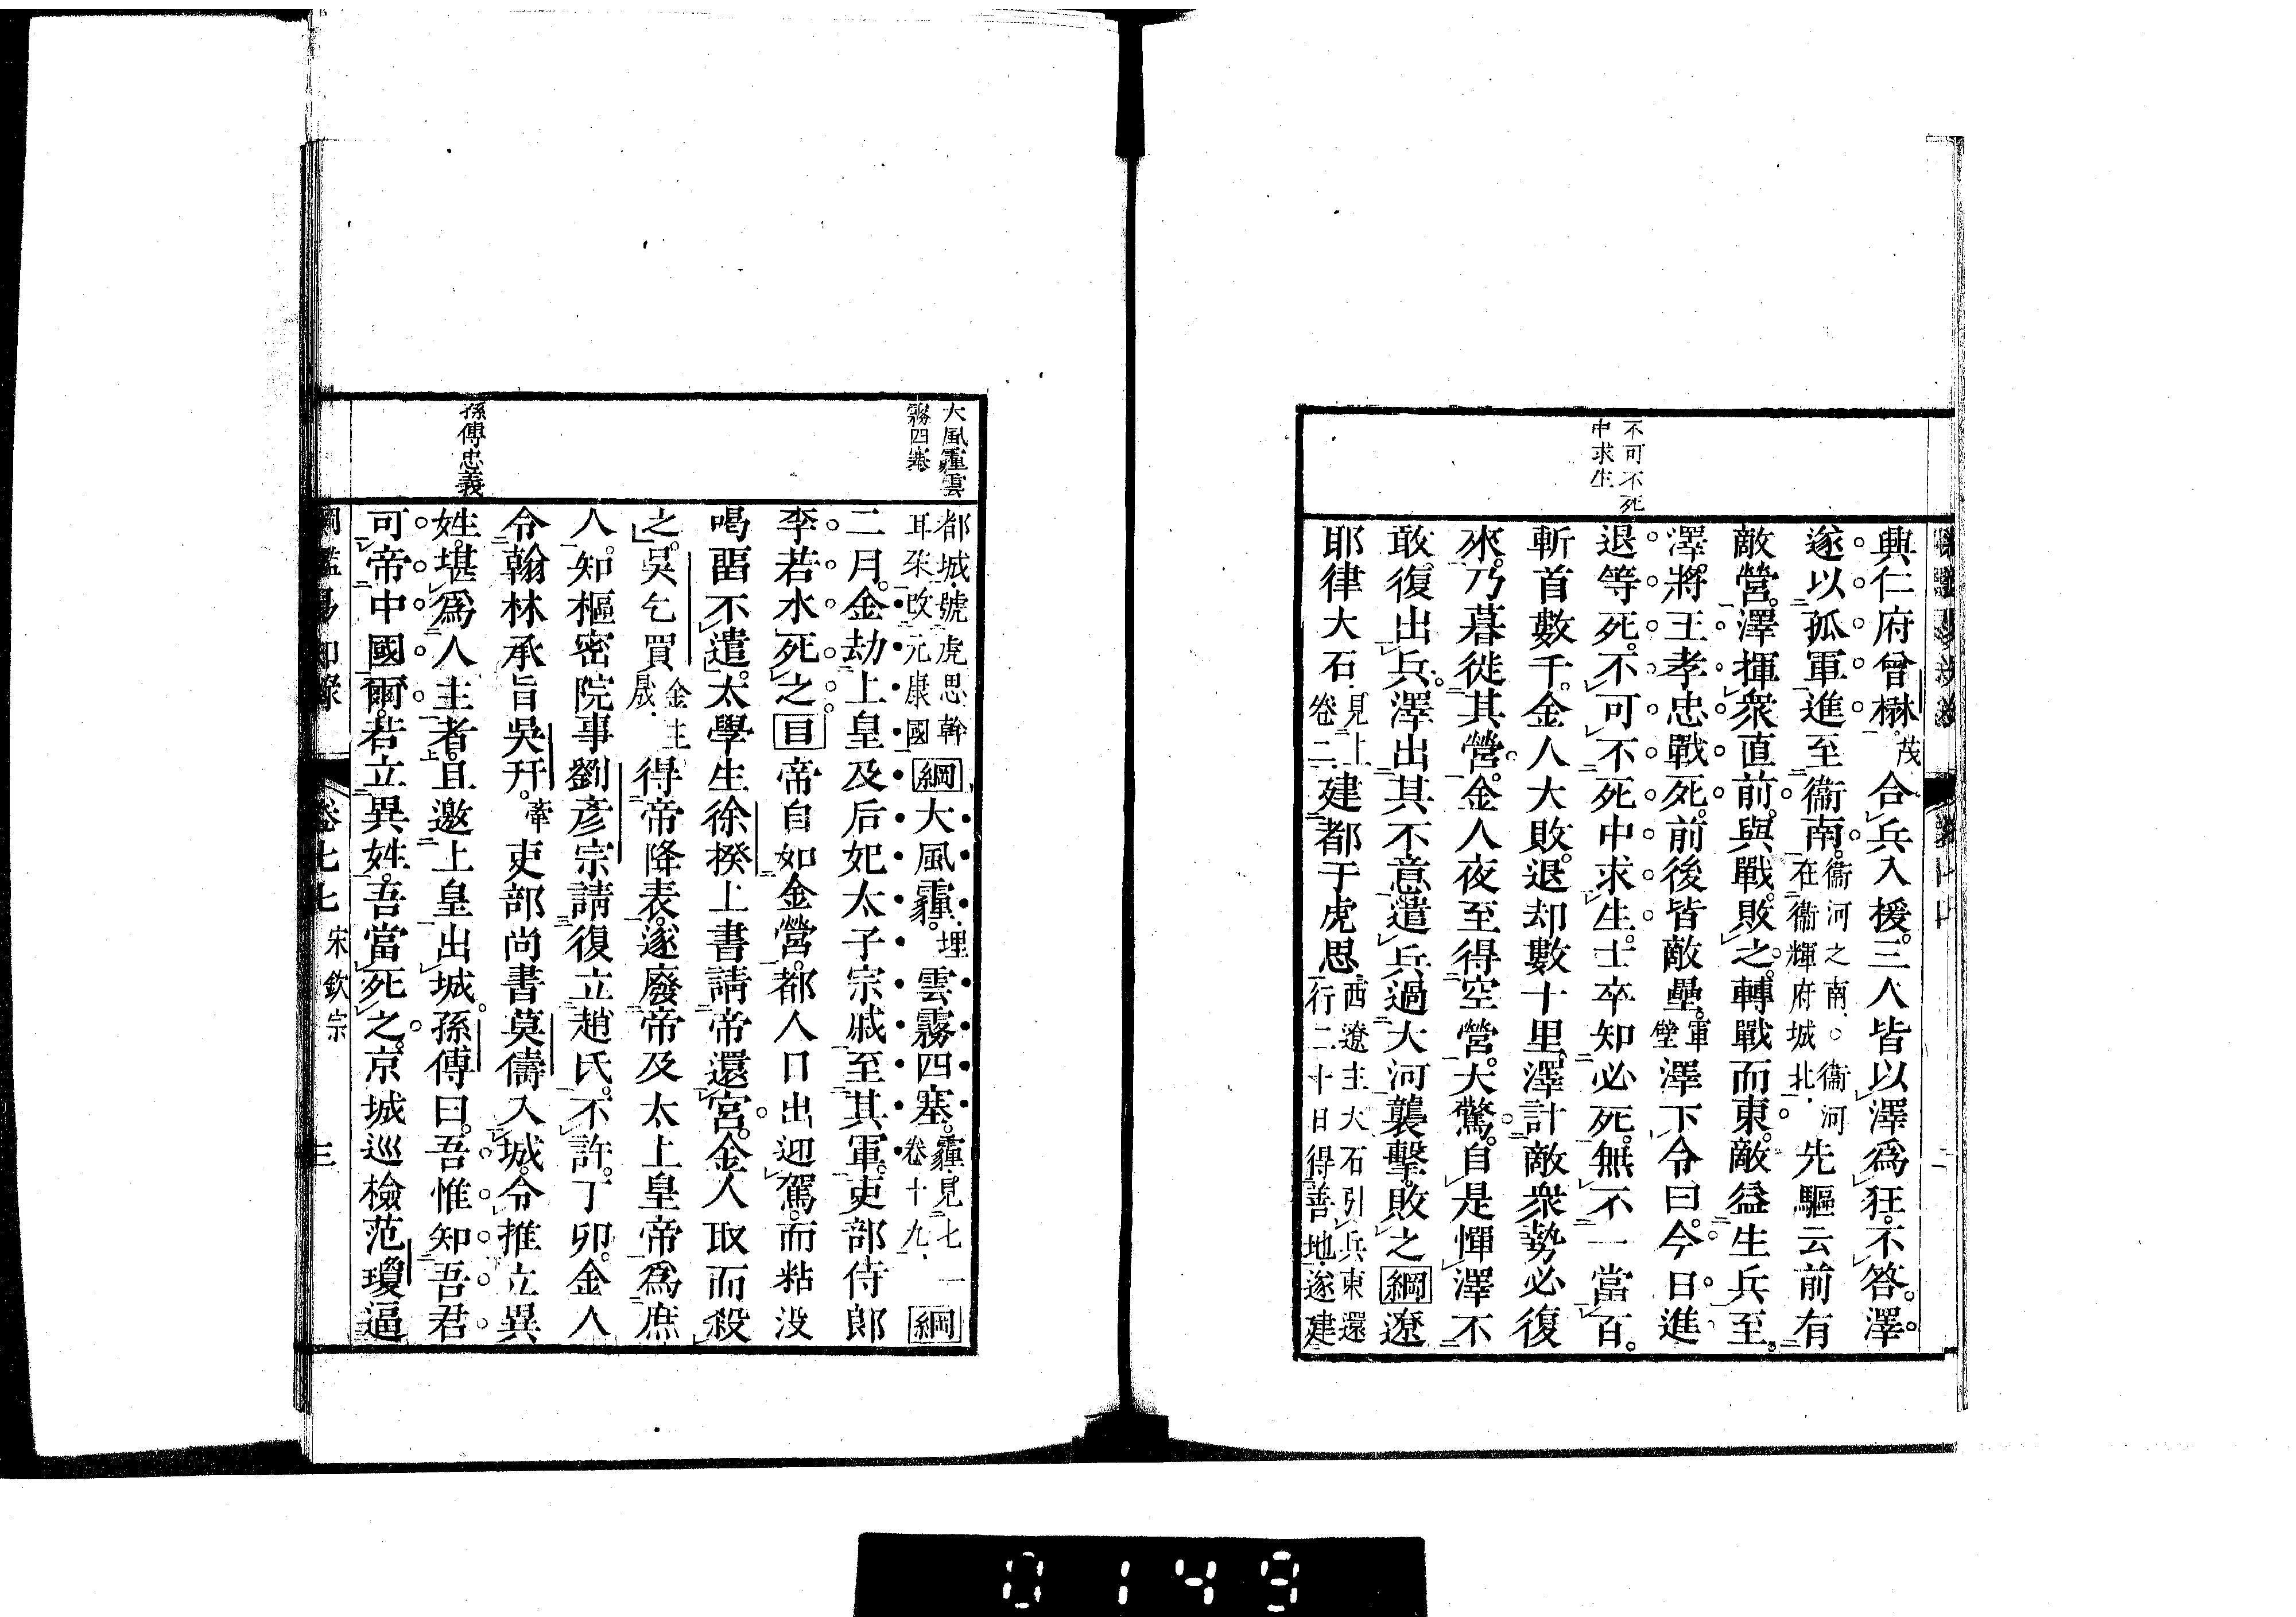 不可不死
中求生
興仁府曾楙茂合兵入援。三人皆以澤爲狂。不答。澤
遂以孤軍進至衞南。衞河之南。○衞河在衞輝府城北。先驅云前有
敵營。澤揮衆直前。與戰。敗之。轉戰而東。敵益生兵至。
澤將王孝忠戰死。前後皆敵壘。軍壁澤下令曰。今日進
退等死。不可不死中求生。士卒知必死。無不一當百。
斬首數千。金人大敗。退却數十里。澤計敵衆勢必復
來。乃暮徙其營。金人夜至得空營。大驚。自是憚澤不
敢復出兵。澤出其不意遣兵過大河襲擊。敗之綱遼
耶律大石見上卷二建都于虎思西遼主大石引兵東還行二十日得善地遂建
大風霾雲
霧四塞
都城號虎思斡耳朶改元康國綱大風霾。埋雲霧四塞。霾見七一卷十九綱
二月。金劫上皇及后妃太子宗戚至其軍。吏部侍郎
李若水死之目帝自如金營。都人日出迎駕。而粘没
喝留不遣。太學生徐揆上書請帝還宮。金人取而殺
之。吳乞買金主晟得帝降表。遂廢帝及太上皇帝爲庶
人。知樞密院事劉彥宗請復立趙氏。不許。丁卯。金人
令翰林承旨吳幵。牽吏部尚書莫儔入城。令推立異
孫傅忠義
姓。堪爲人主者。且邀上皇出城。孫傅曰。吾惟知吾君
可帝中國爾。若立異姓。吾當死之。京城巡檢范瓊逼
綱鑑易知錄 卷七七 宋欽宗 三